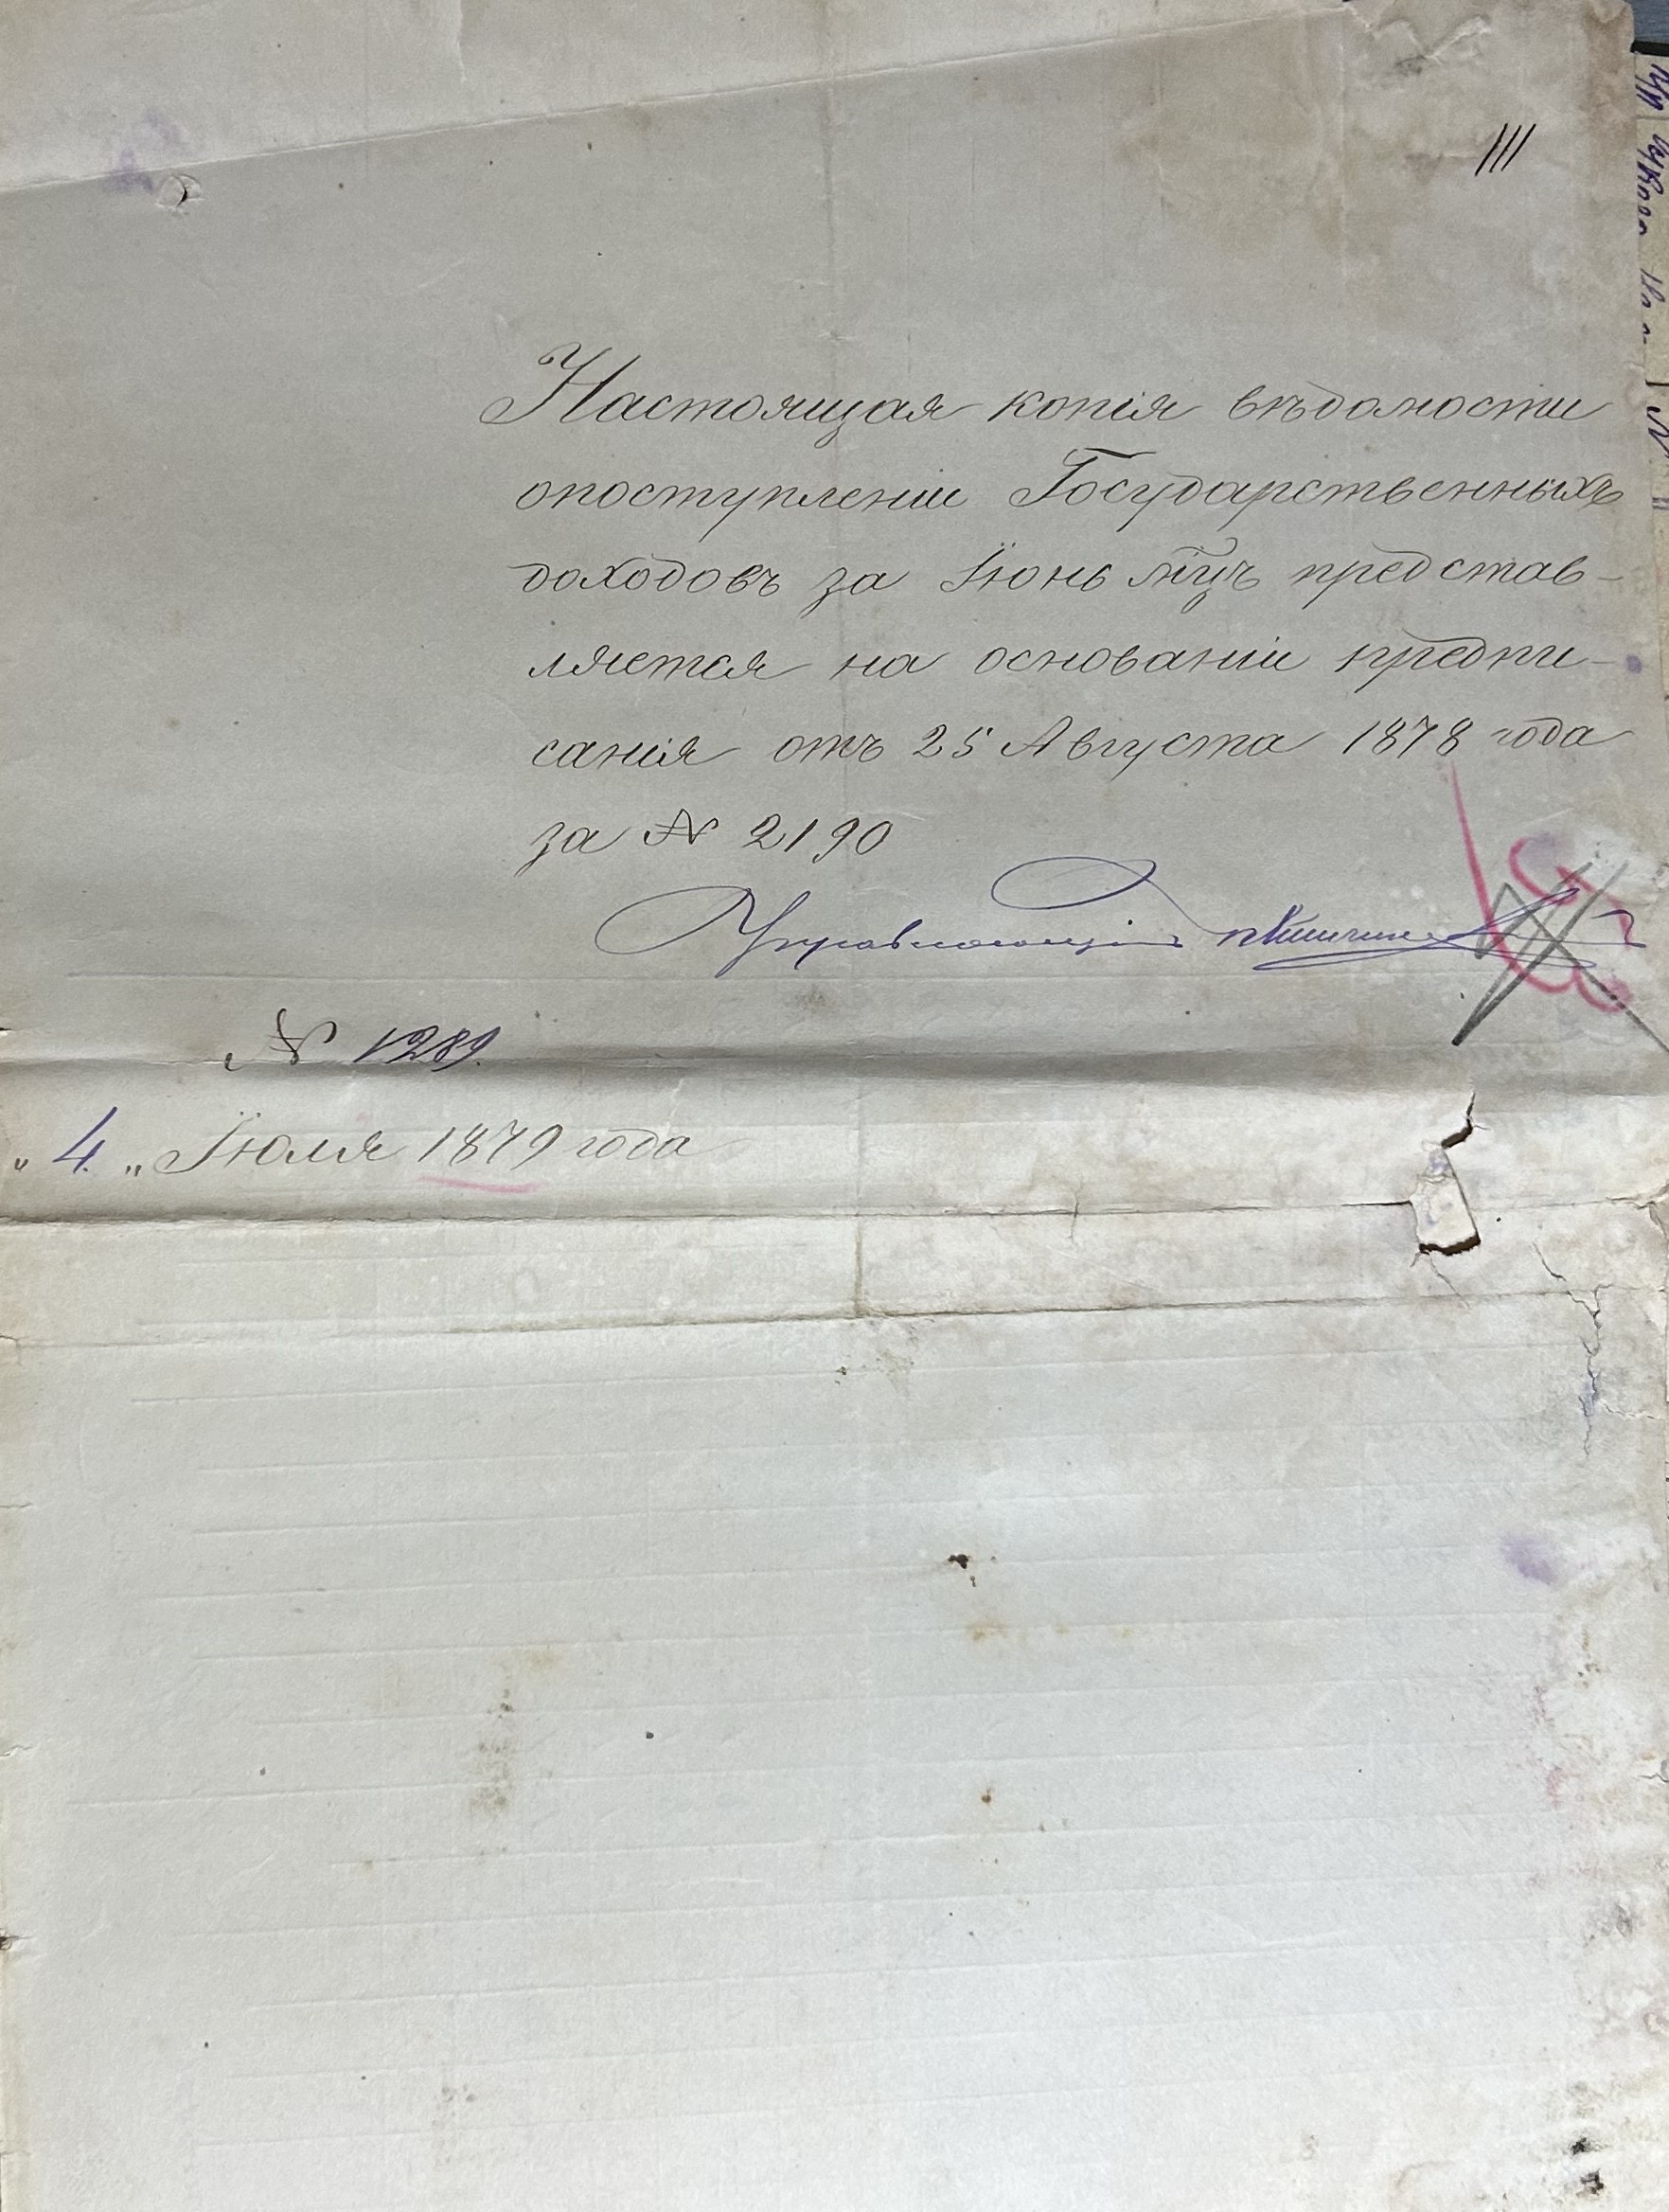 111
Настоящая копія вѣдомости
опоступленіи Государственныхъ
доходовъ за Іюнь мцъ представ-
ляется на основаніи предпи-
санія отъ 25 Августа 1878 года
за № 2190
Управляющій
№ 1289.
„ 4. „ Іюля 1879 года